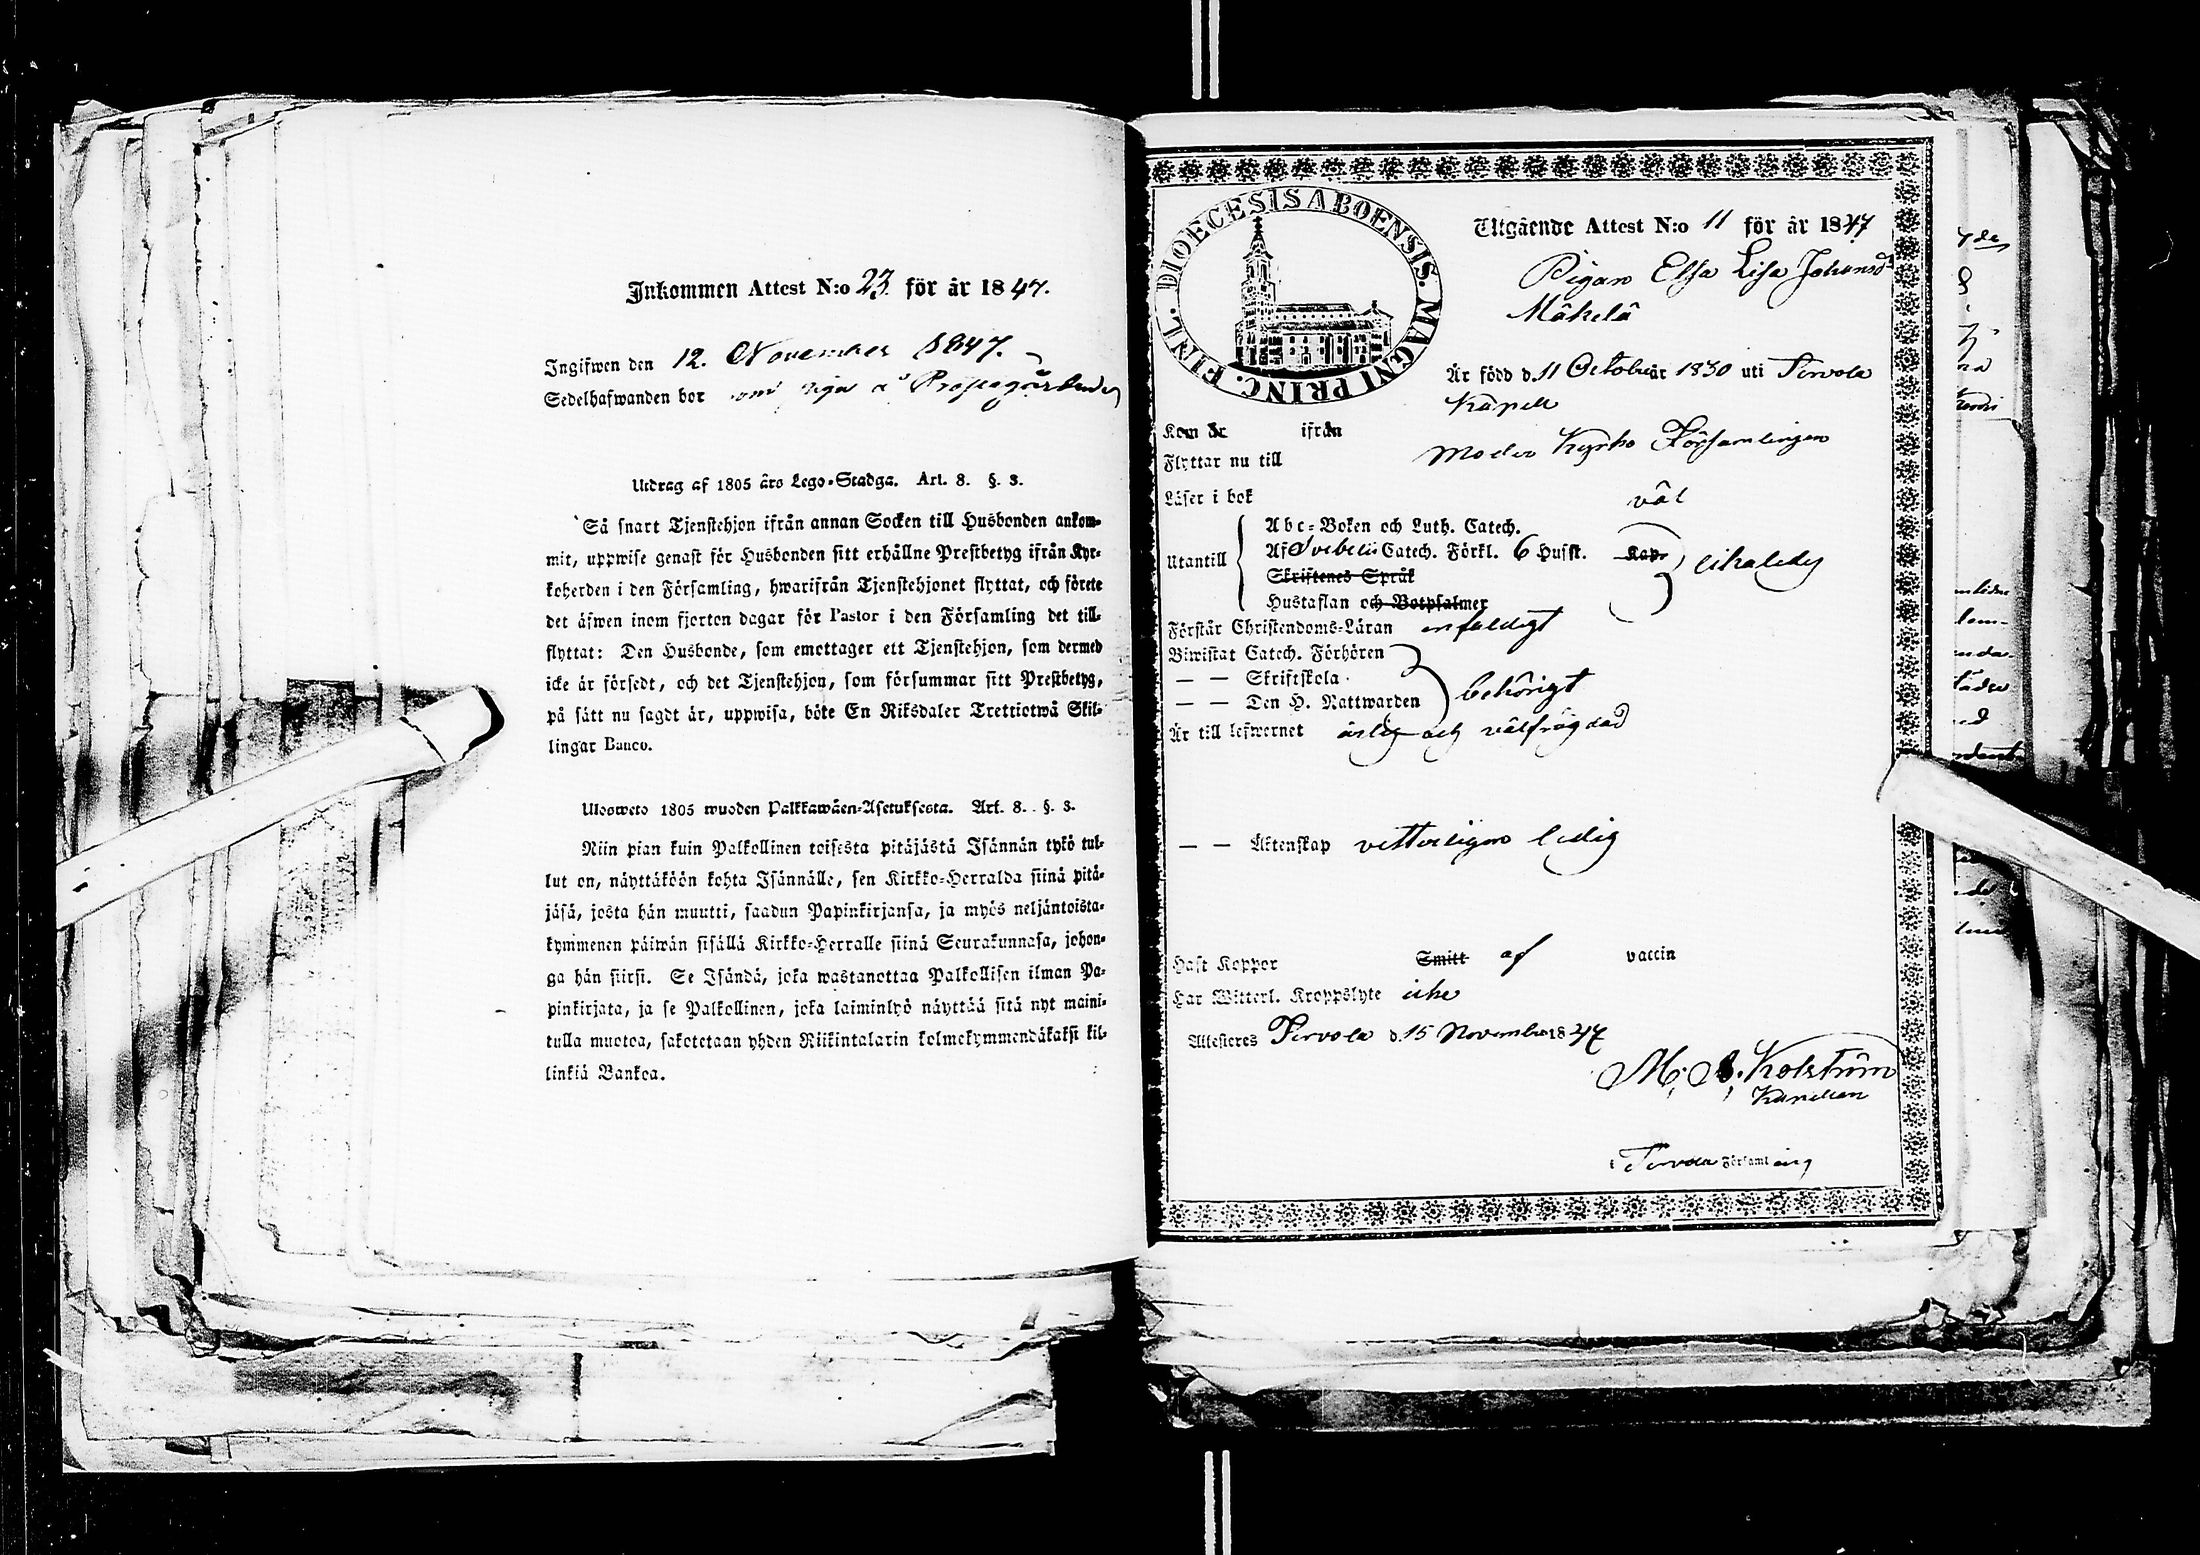 Inkommen Attest N:o 23 för år 1847.
Ingifwen den 12. November 1847.
Sedelhafwanden bor som piga å Prostgården
Utdrag af 1805 års Lego-Stadga. Art. 8. §. 3.
Så snart Tjenstehjon ifrån annan Socken till Husbonden ankom-
mit, uppwise genast för Husbonden sitt erhållne Prestbetyg ifrån Kyr-
koherden i den Församling, hwarifrån Tjenstehjonet flyttat, och förete
det äfwen inom fjorton dagar för Pastor i den Församling det till-
flyttat: Den Husbonde, som emottager ett Tjenstehjon, som dermed
icke är försedt, och det Tjenstehjon, som försummar sitt Prestbetyg,
på sätt nu sagdt är, uppwisa, böte En Riksdaler Trettiotwå Skil-
lingar Banco.
Ulosweto 1805 wuoden Palkkawäen-Asetuksesta. Art. 8. §. 3.
Niin pian kuin Palkollinen toisesta pitäjästä Isännän tykö tul-
lut on, näyttäköön kohta Isännälle, sen Kirkko-Herralda siinä pitä-
jäsä, josta hän muutti, saadun Papinkirjansa, ja myös neljäntoista-
kymmenen päiwän sisällä Kirkko-Herralle siinä Seurakunnasa, johon-
ga hän siirsi. Se Isändä, joka wastanottaa Palkollisen ilman Pa-
pinkirjata, ja se Palkollinen, joka laiminlyö näyttää sitä nyt maini-
tulla muotoa, sakotetaan yhden Riikintalarin kolmekymmendäkaksi kil-
linkiä Bankoa.
DIOECESIS ABOENSIS. MAGNI PRINC. FINL.
Utgående Attest N:o 11 för år 1847
Pigan Elsa Lisa Johansdr
Mäkelä
Är född d. 11 October år 1830 uti Tervola
Kapell
Kom år ifrån
Flyttar nu till Moder Kyrko Församlingen
Läser i bok väl
Utantill
Abc-Boken och Luth. Catech.
Af Svebelii Catech. Förkl. 6 Husst. Kap. likaledes
Skriftenes Språk
Hustaflan och Botpsalmer
Förstår Christendoms-Läran enfaldigt
Biwistat Catech. Förhören
— — Skriftskola
— — Den H. Nattwarden behörigt
Är till lefwernet ärlig och välfrägdad
— — Äktenskap vetterligen ledig
Haft Koppor Smitt af vaccin
Har Witterl. Kroppslyte icke
Attesteres Tervola d. 15 November 1847
Kapellan
i Tervola Församling